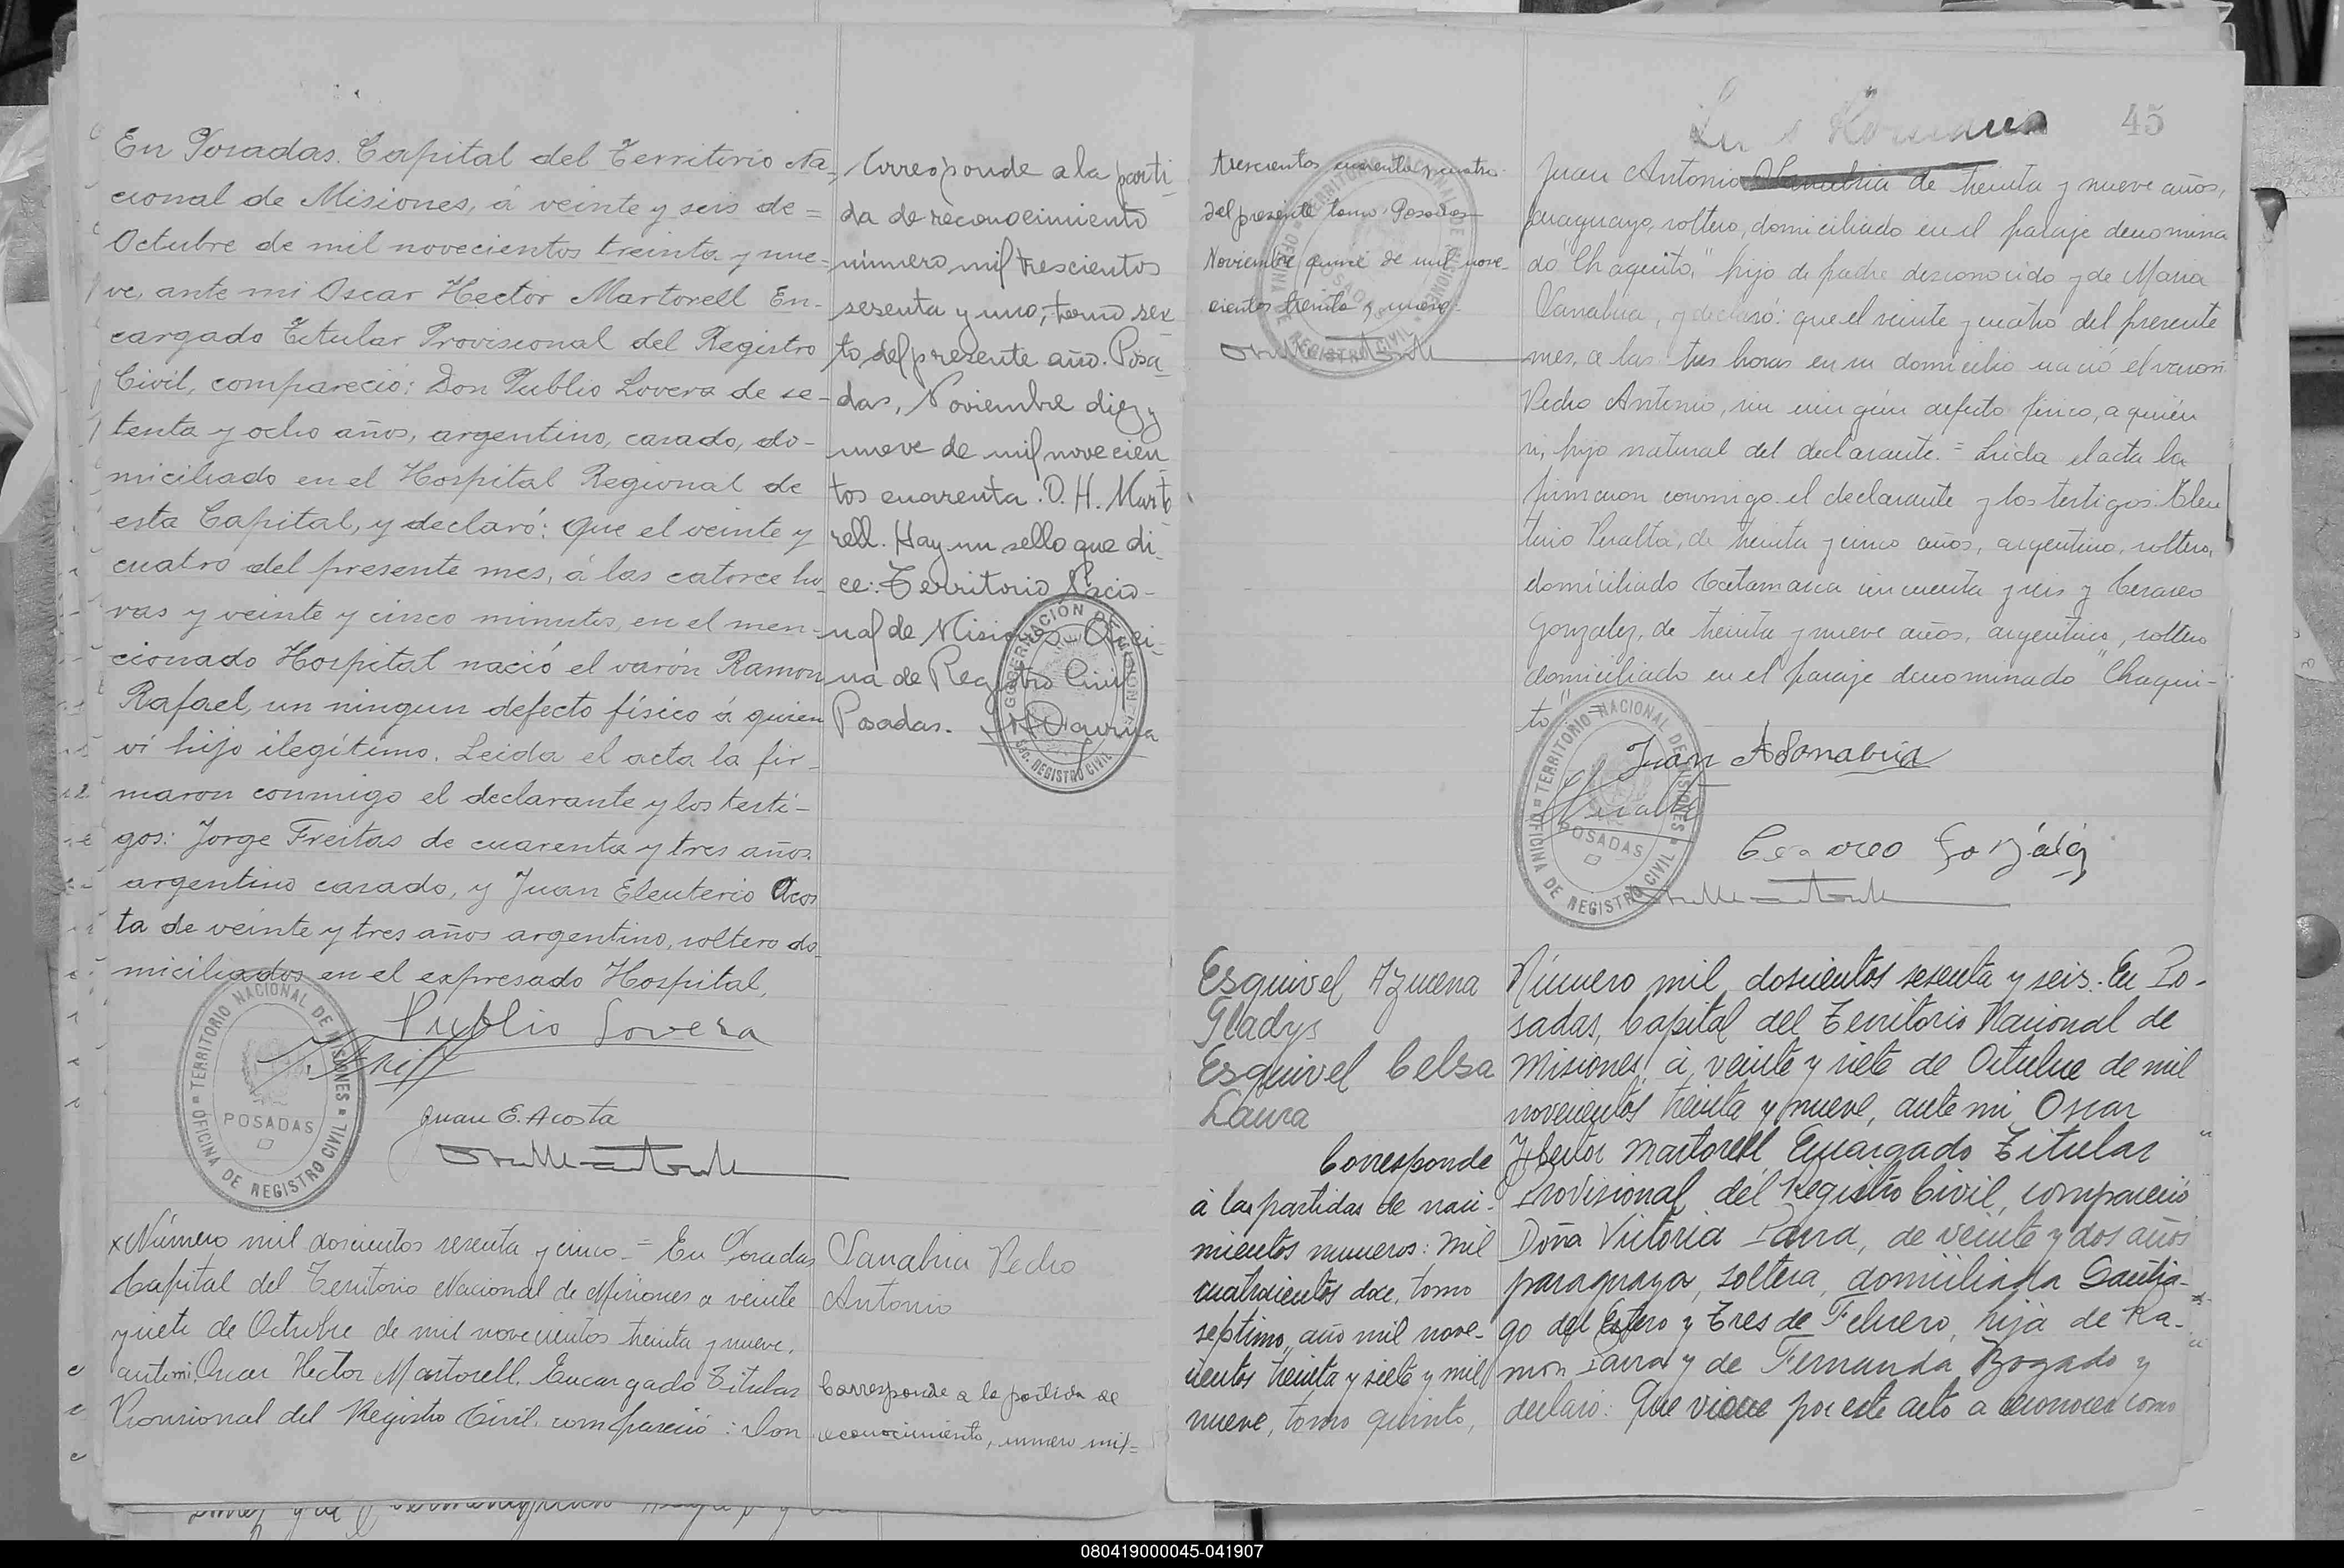 En Posadas. Capital del Territorio Na-
cional de Misiones, á veinte y seis de =
Octubre de mil novecientos treinta y nue-
ve, ante mi Oscar Hector Martorell En-
cargado Titular Provisional del Registro
Civil, compareció: Don Publio Lovera de se-
tenta y ocho años, argentino, casado, do-
miciliado en el Hospital Regional de
esta Capital, y declaró: Que el veinte y
cuatro del presente mes, á las catorce ho-
ras y veinte y cinco minutos, en el men-
cionado Hospital nació el varón Ramon
Rafael, sin ningun defecto físico á quien
ví hijo ilegítimo. Leida el acta la fir-
maron conmigo el declarante y los testi-
gos: Jorge Freitas de cuarenta y tres años
argentino casado, y Juan Eleuterio Acos
ta de veinte y tres años argentino, soltero do
miciliados en el expresado Hospital,
Publio Lovera
Juan E. Acosta
TERRITORIO NACIONAL DE MISIONES
OFICINA DE REGISTRO CIVIL
POSADAS
Corresponde a la parti
da de reconocimiento
número mil trescientos
sesenta y uno, tomo sex
to, del presente año. Posa
das, Noviembre diez y
nueve de mil novecien
tos cuarenta. O. H. Marto
rell. Hay un sello que di-
ce: Territorio Nacio-
nal de Misiones Ofici-
na de Registro Civil
Posadas.
GOBERNACIÓN DE MISIONES
REGISTRO CIVIL
x Número mil doscientos sesenta y cinco = En Posadas
Capital del Territorio Nacional de Misiones a veinte
y siete de Octubre de mil novecientos treinta y nueve,
ante mi Oscar Hector Martorell, Encargado Titular
Provisional del Registro Civil, compareció: Don
Sanabria Pedro
Antonio
Corresponde a la partida de
reconocimiento, número mil =
trescientos cuarenta y cuatro
del presente tomo. Posadas
Noviembre de mil nove-
cientos treinta y nueve.
TERRITORIO NACIONAL DE MISIONES
OFICINA DE REGISTRO CIVIL
POSADAS
45
Juan Antonio Sanabria de treinta y nueve años,
paraguayo, soltero, domiciliado en el paraje denomina
do "Chaquito," hijo de padre desconocido y de Maria
Sanabria, y declaró: que el veinte y cuatro del presente
mes, a las tres horas en su domicilio nació el varon
Pedro Antonio, sin ningún defecto fisico, a quién
vi, hijo natural del declarante. = Leida el acta la
firmaron conmigo el declarante y los testigos: Eleu
terio Peralta, de treinta y cinco años, argentino, soltero,
domiciliado Catamarca cincuenta y seis y Cesareo
Gonzalez, de treinta y nueve años, argentino, soltero
domiciliado en el paraje denominado "Chaqui-
to" =
Juan A Sanabria
Cesareo González
TERRITORIO NACIONAL DE MISIONES
OFICINA DE REGISTRO CIVIL
POSADAS
Esquivel Azucena
Gladys
Esquivel Celsa
Laura
Corresponde
á las partidas de naci-
mientos numeros: mil
cuatrocientos doce, tomo
septimo, año mil nove-
cientos treinta y siete y mil
nueve, tomo quinto,
Número mil doscientos sesenta y seis. En Po-
sadas, Capital del Territorio Nacional de
Misiones, á veinte y siete de Octubre de mil
novecientos treinta y nueve, ante mi Oscar
Hector Martorell Encargado Titular
Provisional del Registro Civil, compareció
Doña Victoria Parra, de veinte y dos años
paraguaya, soltera, domiciliada Santia-
go del Estero y Tres de Febrero, hija de Ra-
mon Parra y de Fernanda Bogado y
declaró: Que viene por este acto a reconocer como
080419000045-041907